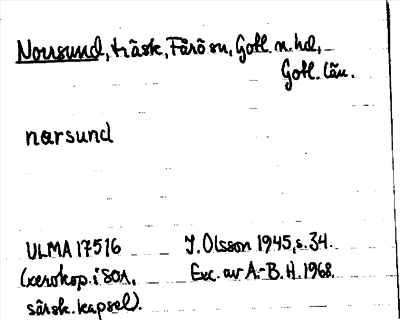 Norrsund, träsk, Fårö sn, Gotl. n. hd,
Gotl. län.
narsund
ULMA 17516 J. Olsson 1945, s. 34.
(xerokop. i SOA, Exc. av A.-B. H. 1968.
särsk. kapsel).